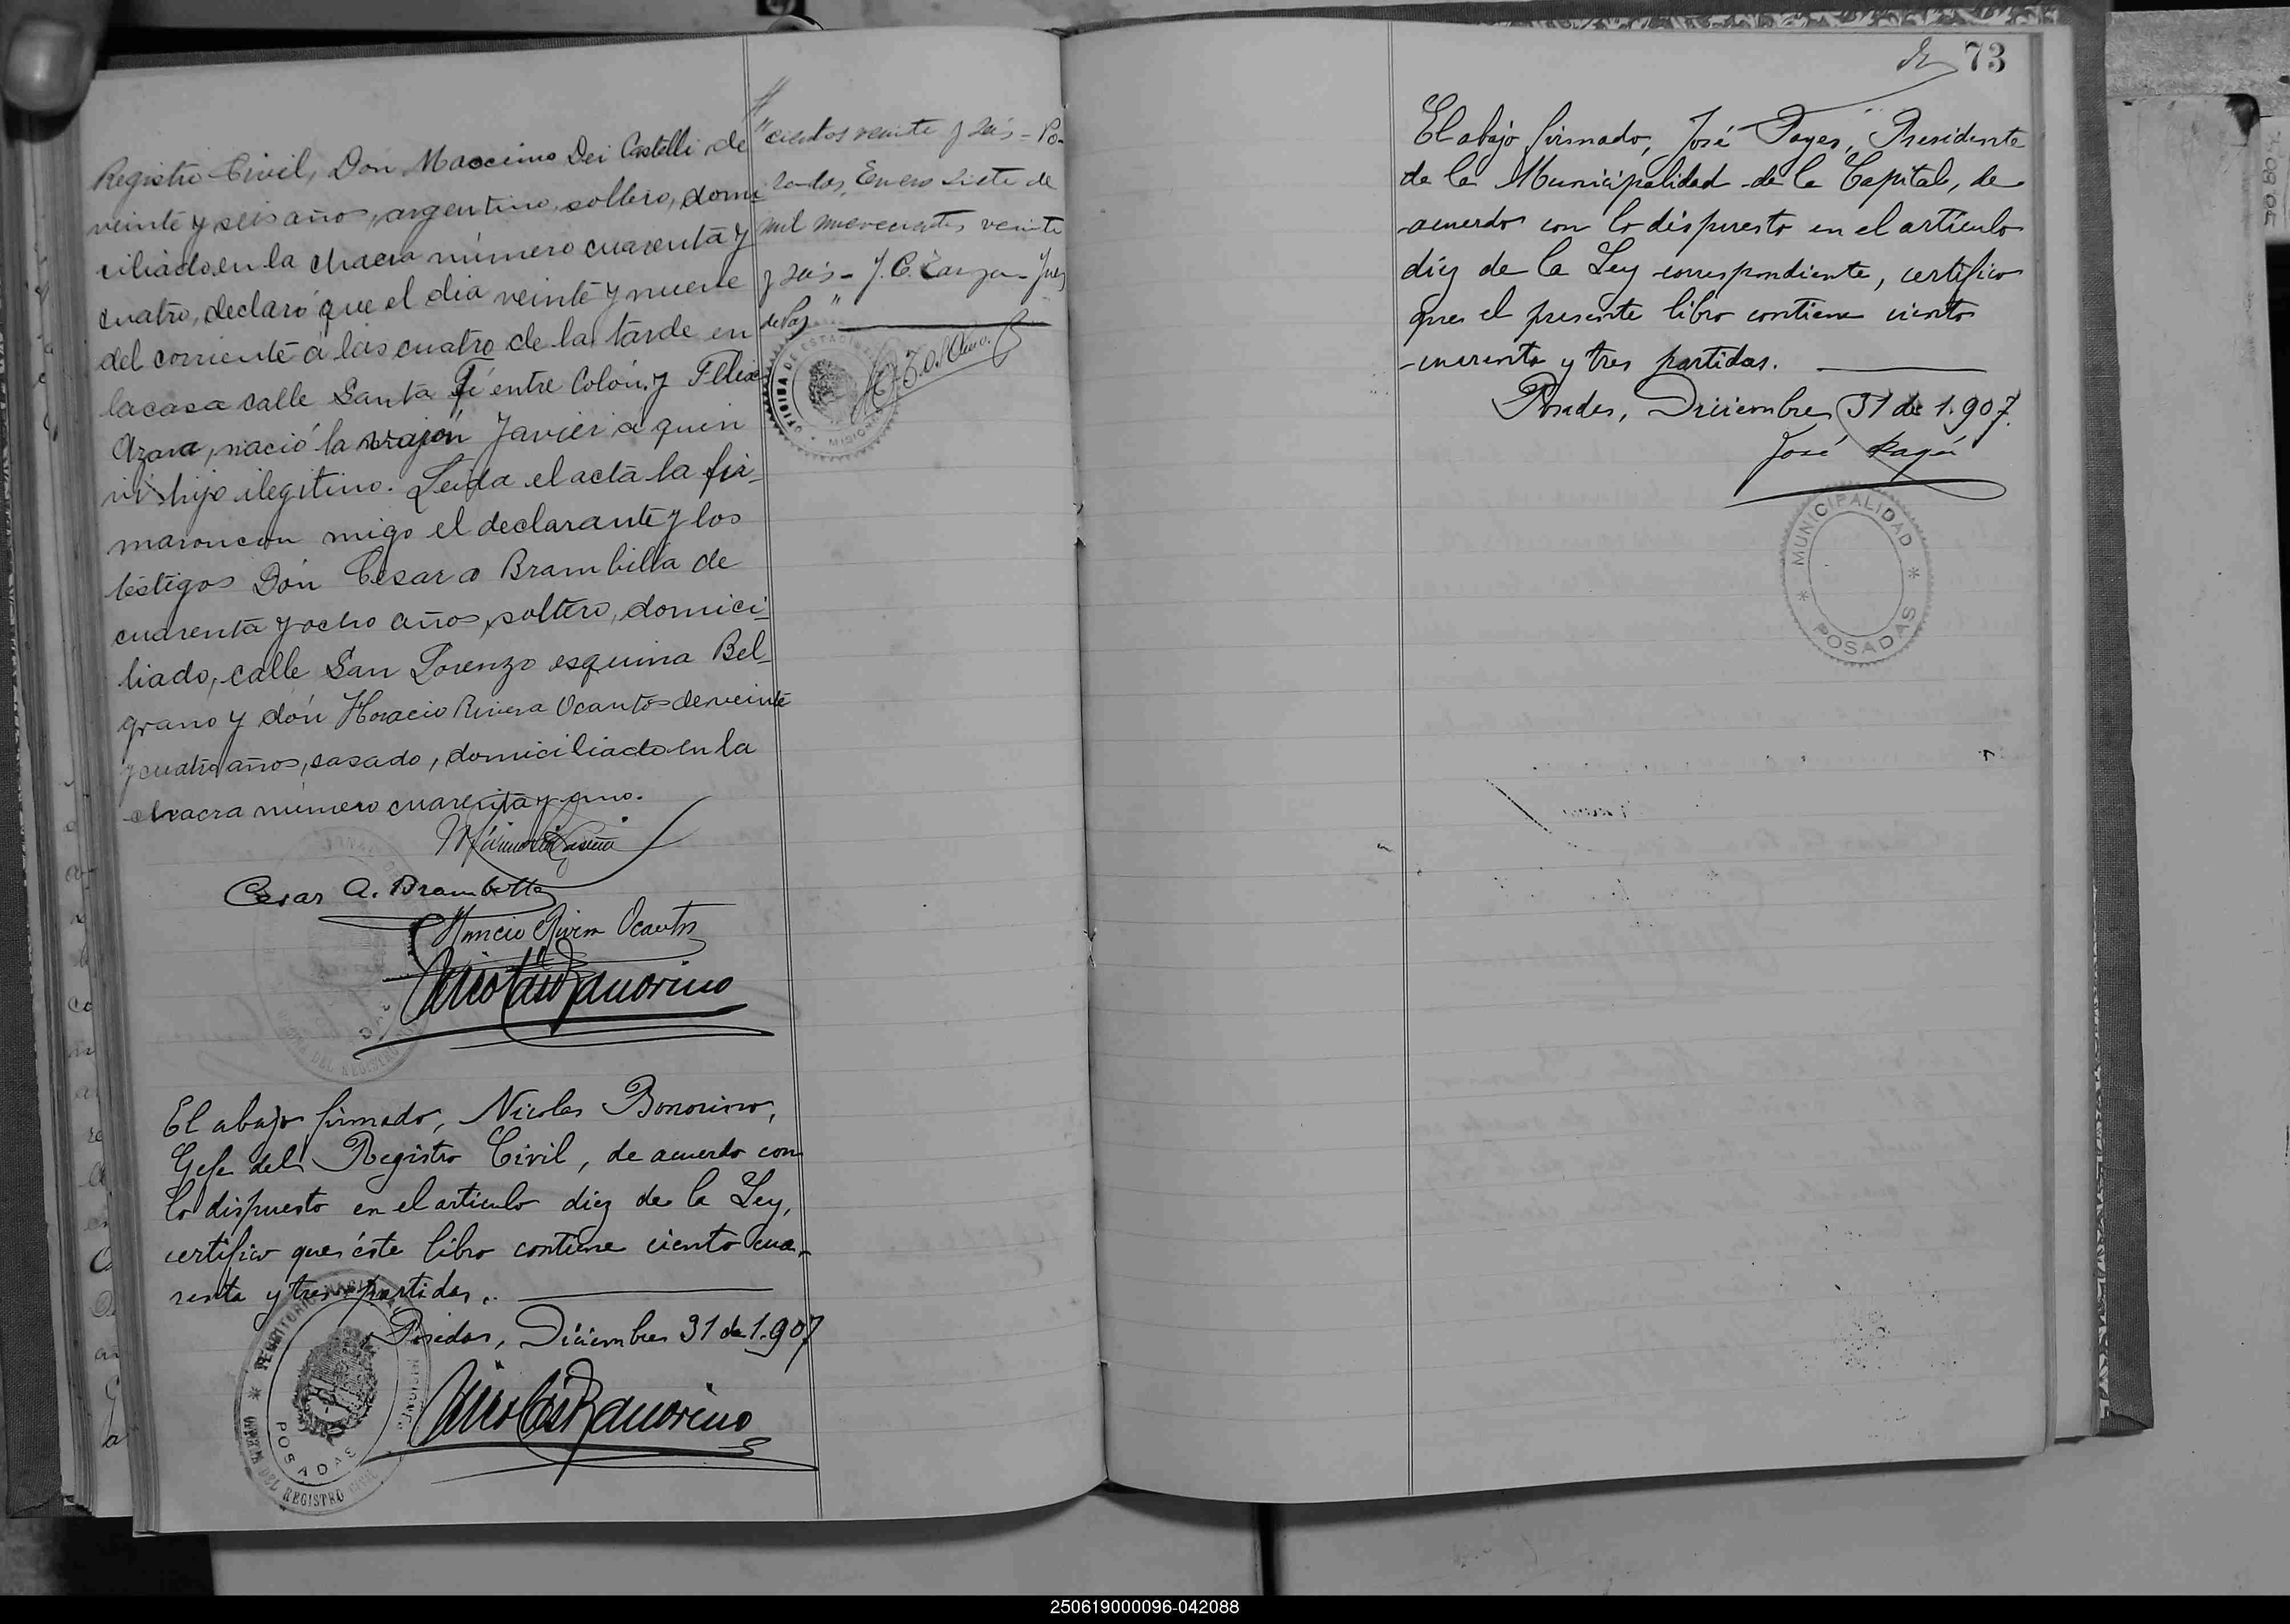 Registro Civil, Don Maximo Dei Castelli de
veinte y seis años, argentino, soltero, domi
ciliado en la chacra número cuarenta y
cuatro, declaró que el dia veinte y nueve
del corriente á las cuatro de la tarde en
la casa calle Santa Fé entre Colón y Felix
Azara, nació la varón Javier a quien
hijo ilegitimo. Leida el acta la fir-
maron con migo el declarante y los
testigos Don Cesar A Brambilla de
cuarenta y ocho años, soltero, domici-
liado, calle San Lorenzo esquina Bel-
grano y don Horacio Rivera Ocantos de veinte
y cuatro años, casado, domiciliado en la
chacra número cuarenta y uno.
Cesar A. Brambilla
Horacio Rivera Ocantos
Nicolás Bonorino
El abajo firmado, Nicolas Bonorino,
Gefe del Registro Civil, de acuerdo con
lo dispuesto en el articulo diez de la Ley,
certifico que éste libro contiene ciento cua-
renta y tres partidas.
Posadas, Diciembre 31 de 1.907
Nicolás Bonorino
TERRITORIO NACIONAL MISIONES
OFICINA DEL REGISTRO CIVIL
POSADAS
"cientos veinte y seis - Po-
sadas, Enero siete de
mil novecientos veinte
y seis - J. C. - Juez
de Paz"
OFICINA DE ESTADISTICA
MISIONES
73
El abajo firmado, José Pagés, Presidente
de la Municipalidad de la Capital, de
acuerdo con lo dispuesto en el articulo
diez de la Ley correspondiente, certifico
que el presente libro contiene ciento
cuarenta y tres partidas.
Posadas, Diciembre 31 de 1.907.
José Pagés
MUNICIPALIDAD
POSADAS
250619000096-042088